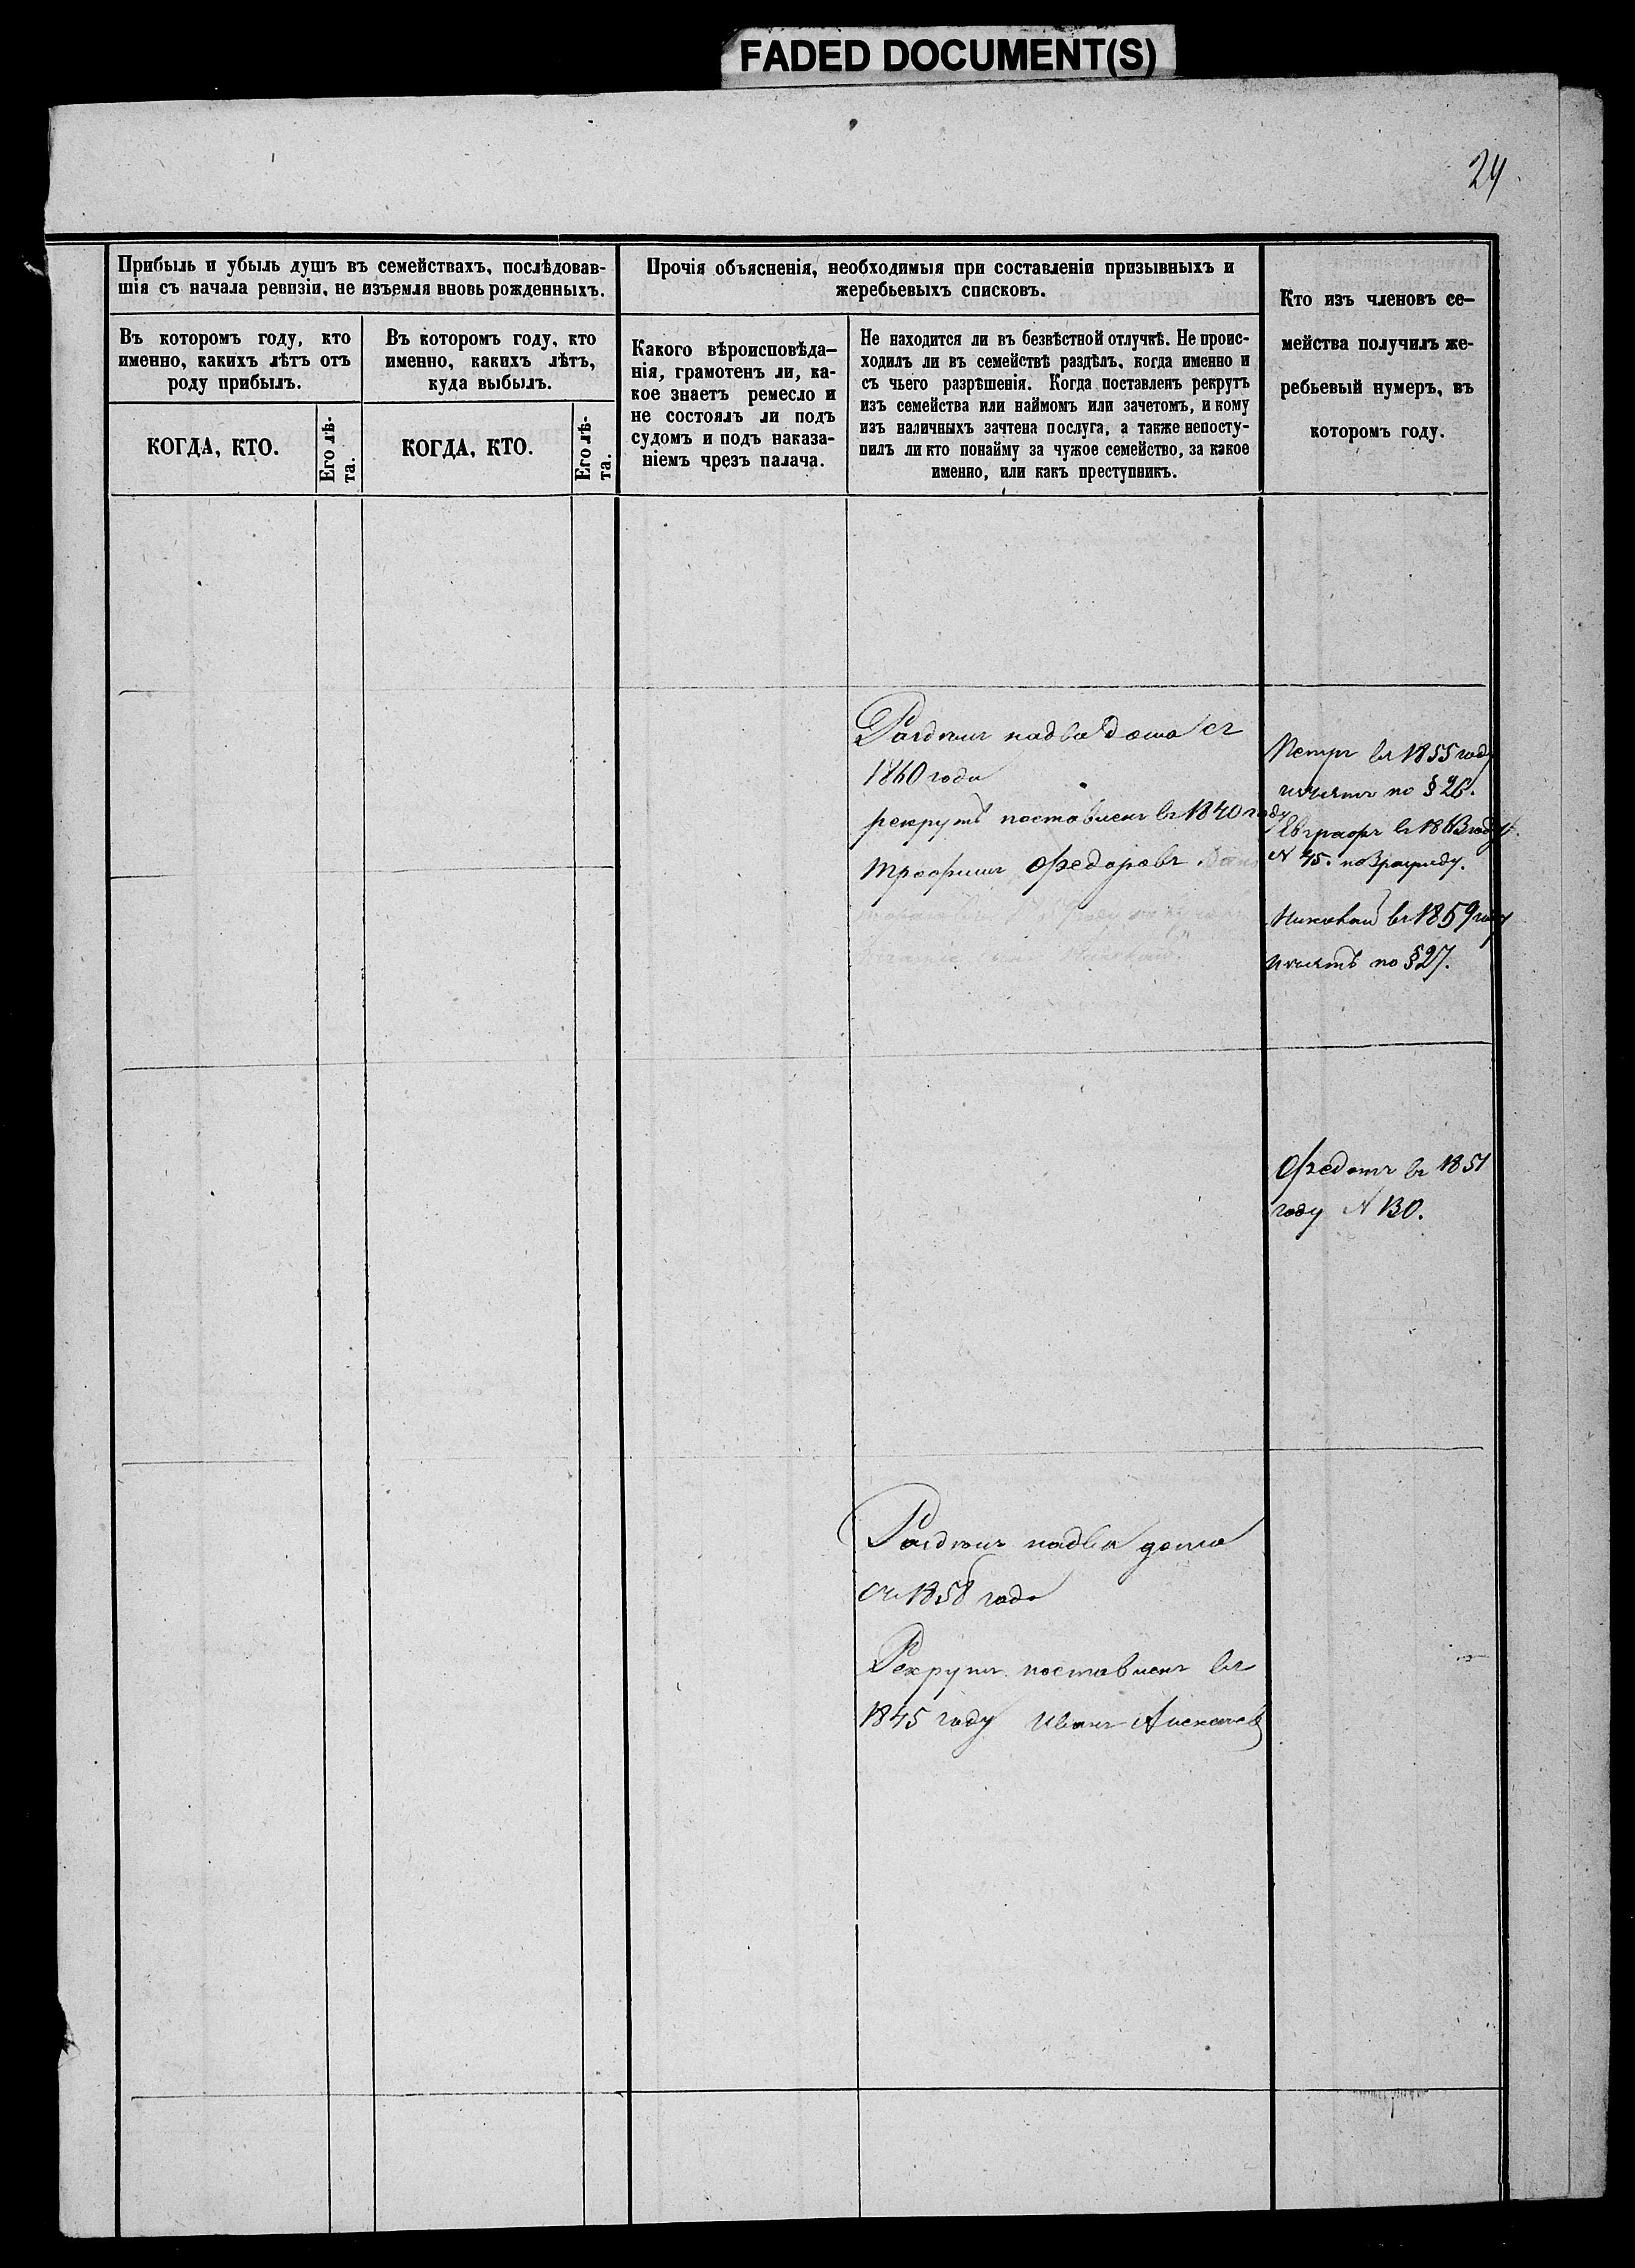 FADED DOCUMENT(S)
24
Прибыль и убыль душъ въ семействахъ, послѣдовав-
шія съ начала ревизіи, не изъемля вновь рожденныхъ.
Въ которомъ году, кто
именно, какихъ лѣтъ отъ
роду прибылъ.
КОГДА, КТО.
Его лѣ-
та.
Въ которомъ году, кто
именно, какихъ лѣтъ,
куда выбылъ.
КОГДА, КТО.
Его лѣ-
та.
Прочія объясненія, необходимыя при составленіи призывныхъ и
жеребьевыхъ списковъ.
Какого вѣроисповѣда-
нія, грамотенъ ли, ка-
кое знаетъ ремесло и
не состоялъ ли подъ
судомъ и подъ наказа-
ніемъ чрезъ палача.
Не находится ли въ безвѣстной отлучкѣ. Не проис-
ходилъ ли въ семействѣ раздѣлъ, когда именно и
съ чьего разрѣшенія. Когда поставленъ рекрутъ
изъ семейства или наймомъ или зачетомъ, и кому
изъ наличныхъ зачтена послуга, а также непосту-
пилъ ли кто понайму за чужое семейство, за какое
именно, или какъ преступникъ.
Кто изъ членовъ се-
мейства получилъ же-
ребьевый нумеръ, въ
которомъ году.
надва дома съ
1860 года
рекрутъ поставленъ въ 1840 году
Трофимъ Федоровъ
Петръ въ 1855 году
изъятъ по § 26.
Евграфъ въ 1863 году
N 45. по 3 разряду.
Николай въ 1859 году
Изъятъ по § 27.
Федотъ въ 1851
году N 130.
надва дома
съ 1858 года
Рекрутъ поставленъ въ
1845 году Иванъ Алексѣевъ